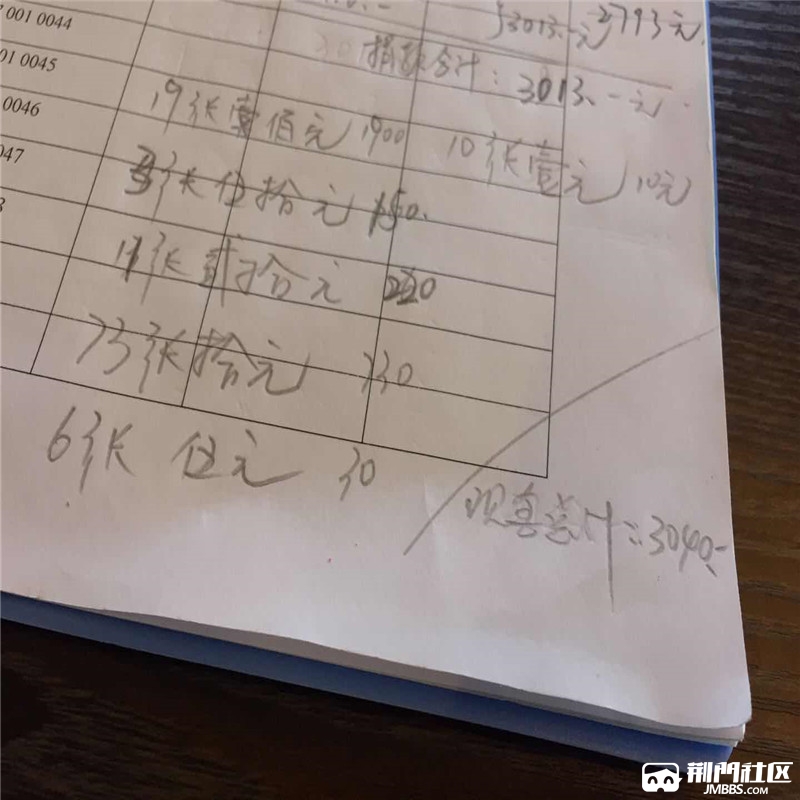 001 0044
3013.-元 2793元.
捐款合计: 3013.-元.
01 0045
0046
19张壹佰元 1900
10张壹元 10元
047
3张伍拾元 150.
11张贰拾元 220
73张拾元 730
6张 伍元 30
现真总计: 3040.-
荆門社区
JMBBS.COM